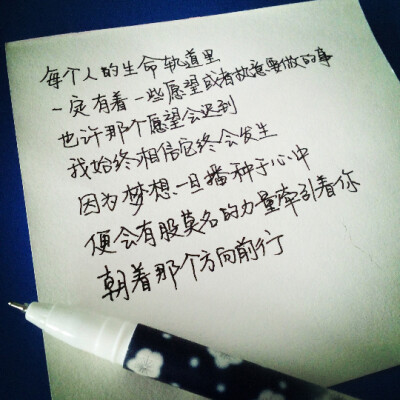 每个人的生命轨道里
一定有着一些愿望或者执意要做的事
也许那个愿望会迟到
我始终相信它终会发生
因为梦想一旦播种于心中
便会有股莫名的力量牵引着你
朝着那个方向前行